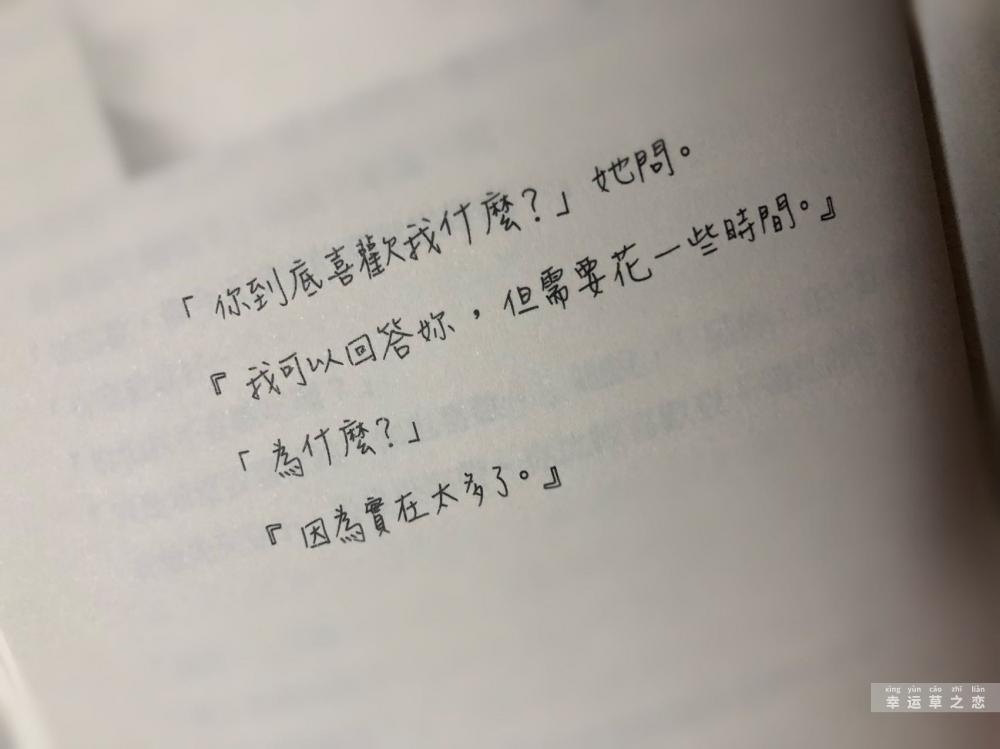 「你到底喜歡我什麼?」她問。
『我可以回答妳，但需要花一些時間。』
「為什麼?」
『因為實在太多了。』
xìng yùn cǎo zhī liàn
幸运草之恋